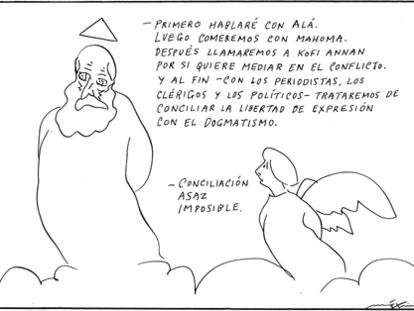 - PRIMERO HABLARÉ CON ALÁ.
LUEGO COMEREMOS CON MAHOMA.
DESPUÉS LLAMAREMOS A KOFI ANNAN
POR SI QUIERE MEDIAR EN EL CONFLICTO.
Y AL FIN -CON LOS PERIODISTAS, LOS
CLÉRIGOS Y LOS POLÍTICOS- TRATAREMOS DE
CONCILIAR LA LIBERTAD DE EXPRESIÓN
CON EL DOGMATISMO.
- CONCILIACIÓN
ASAZ
IMPOSIBLE.